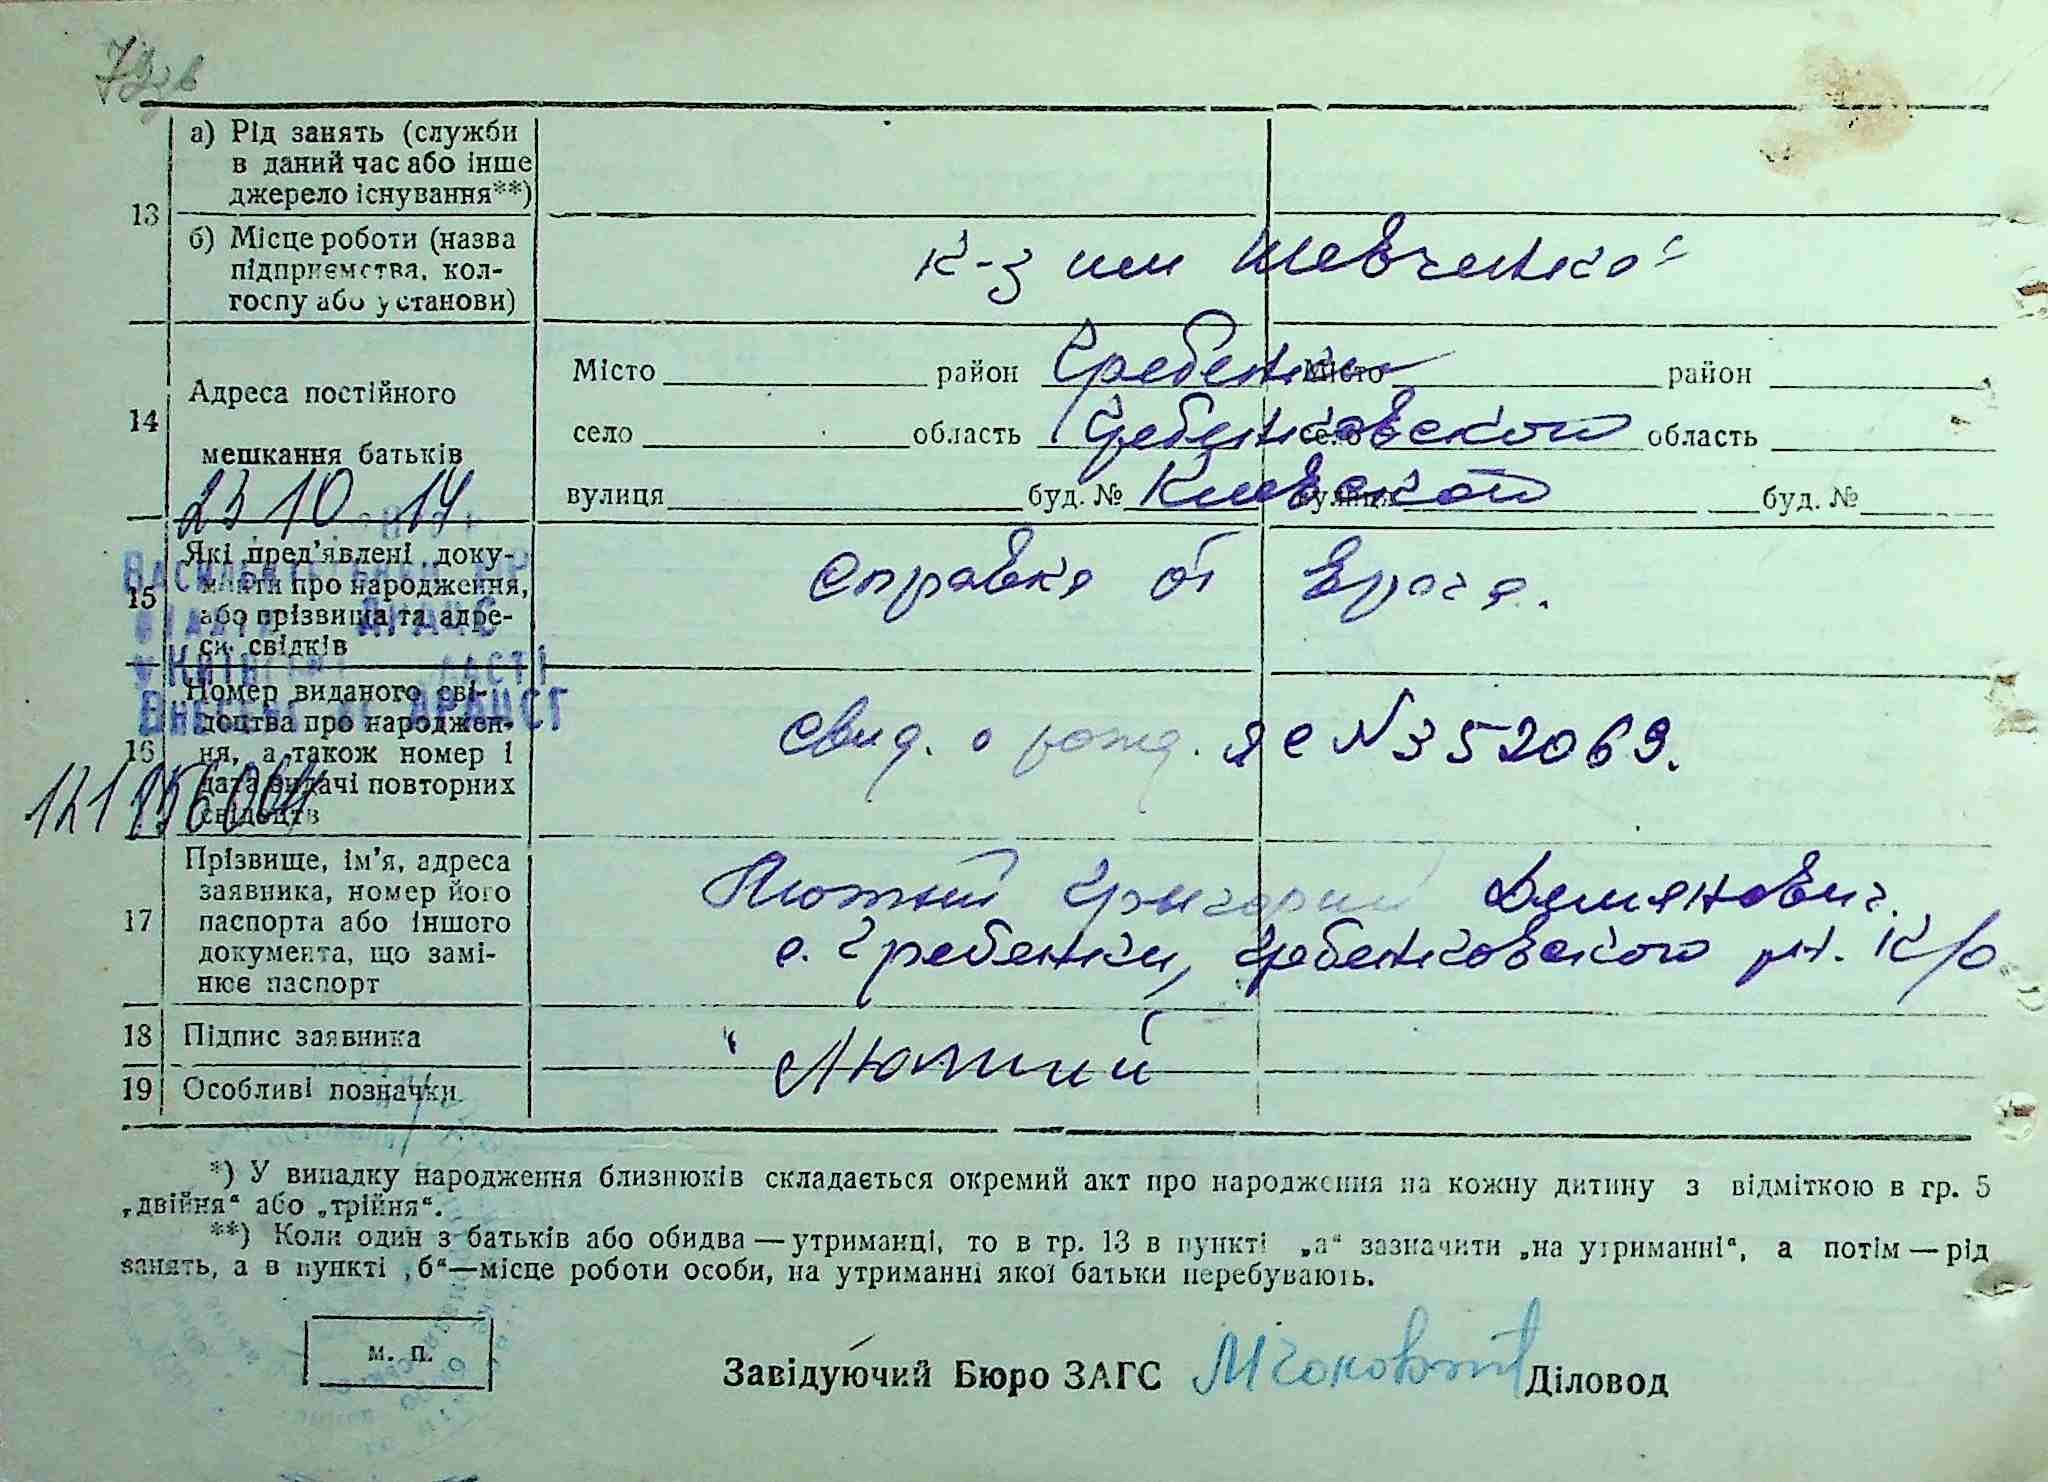 13
а) Рід занять (служби
в даний час або інше
джерело існування**)
б) Місце роботи (назва
підприємства, кол-
госпу або установи)
к-з им Шевченко
14
Адреса постійного
мешкання батьків
Місто район Гребенки Місто район
село область Гребенковского село область
вулиця буд. № Киевской вулиця буд. №
23 10 14
15
Які пред'явлені доку-
менти про народження,
або прізвища та адре-
си свідків
справка от врача.
16
Номер виданого сві-
доцтва про народжен-
ня, а також номер і
дата видачі повторних
свідоцтв
свид. о рожд. ЯС N 352069.
17
Прізвище, ім'я, адреса
заявника, номер його
паспорта або іншого
документа, що замі-
нює паспорт
Лютый Григорий Демянович.
с. Гребенки, Гребенковского рн. К/о
18 Підпис заявника
Лютий
19 Особливі позначки
*) У випадку народження близнюків складається окремий акт про народження на кожну дитину з відміткою в гр. 5
„двійня“ або „трійня“.
**) Коли один з батьків або обидва — утриманці, то в гр. 13 в пункті „а“ зазначити „на утриманні“, а потім — рід
занять, а в пункті „б“—місце роботи особи, на утриманні якої батьки перебувають.
м. п.
Завідуючий Бюро ЗАГС Діловод